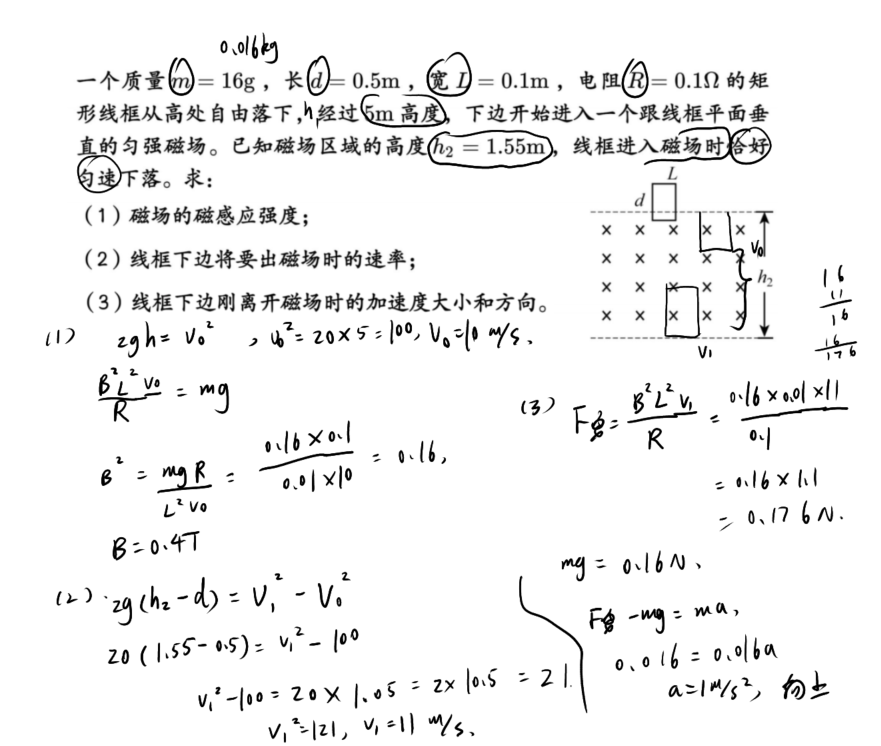 0.016kg
一个质量m = 16g，长d = 0.5m，宽L = 0.1m，电阻R = 0.1Ω的矩
形线框从高处自由落下，h经过5m高度，下边开始进入一个跟线框平面垂
直的匀强磁场。已知磁场区域的高度h₂ = 1.55m，线框进入磁场时恰好
匀速下落。求：
（1）磁场的磁感应强度；
（2）线框下边将要出磁场时的速率；
（3）线框下边刚离开磁场时的加速度大小和方向。
L
d
× × × × ×
× × × × ×
× × × × ×
× × × × ×
V₀
h₂
V₁
16
11
16
16
176
(1) 2gh = V₀², V₀² = 20×5 = 100, V₀ = 10 m/s.
B²L²V₀/R = mg
B² = mgR/L²V₀ = 0.16×0.1/0.01×10 = 0.16,
B = 0.4T
(2) 2g(h₂-d) = V₁² - V₀²
20(1.55-0.5) = V₁² - 100
V₁²-100 = 20×1.05 = 2×10.5 = 21.
V₁² = 121, V₁ = 11 m/s.
(3) F安 = B²L²V₁/R = 0.16×0.01×11/0.1
= 0.16×1.1
= 0.176N.
mg = 0.16N.
F安 - mg = ma,
0.016 = 0.016a
a = 1m/s², 向上